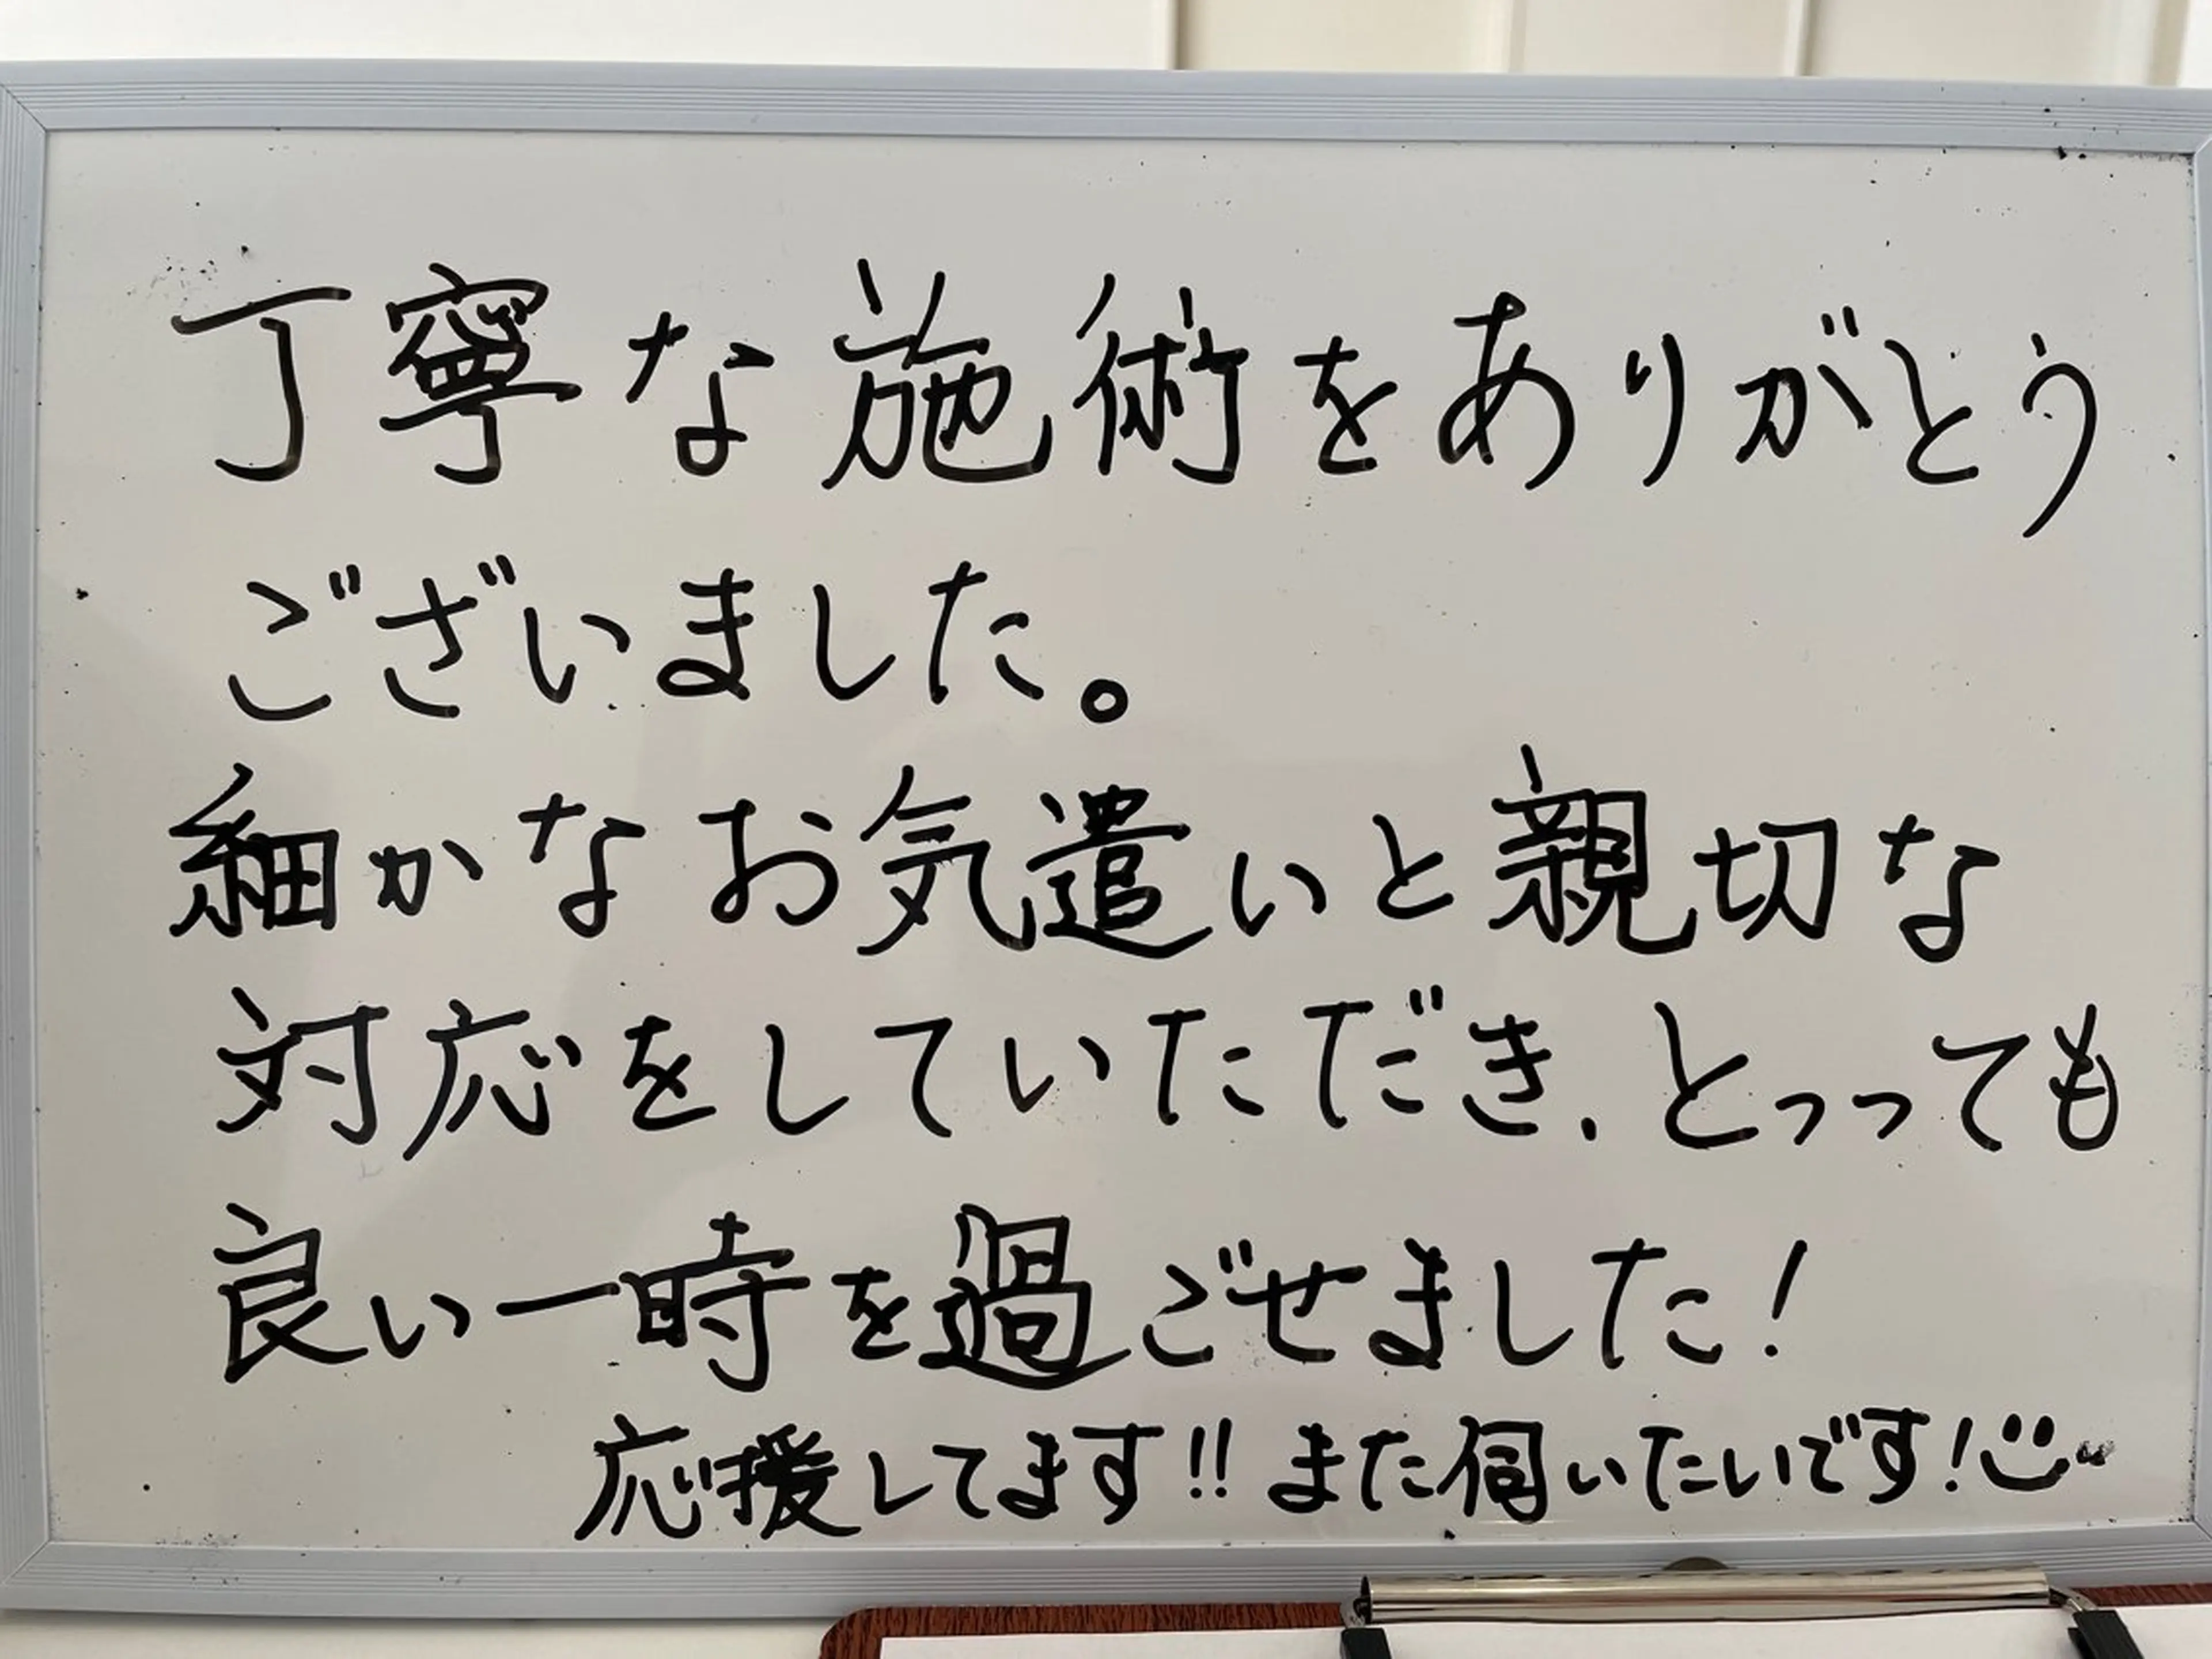 丁寧な施術をありがとう
ございました。
細かなお気遣いと親切な
対応をしていただき、とっっても
良い一時を過ごせました!
応援してます!! また伺いたいです!